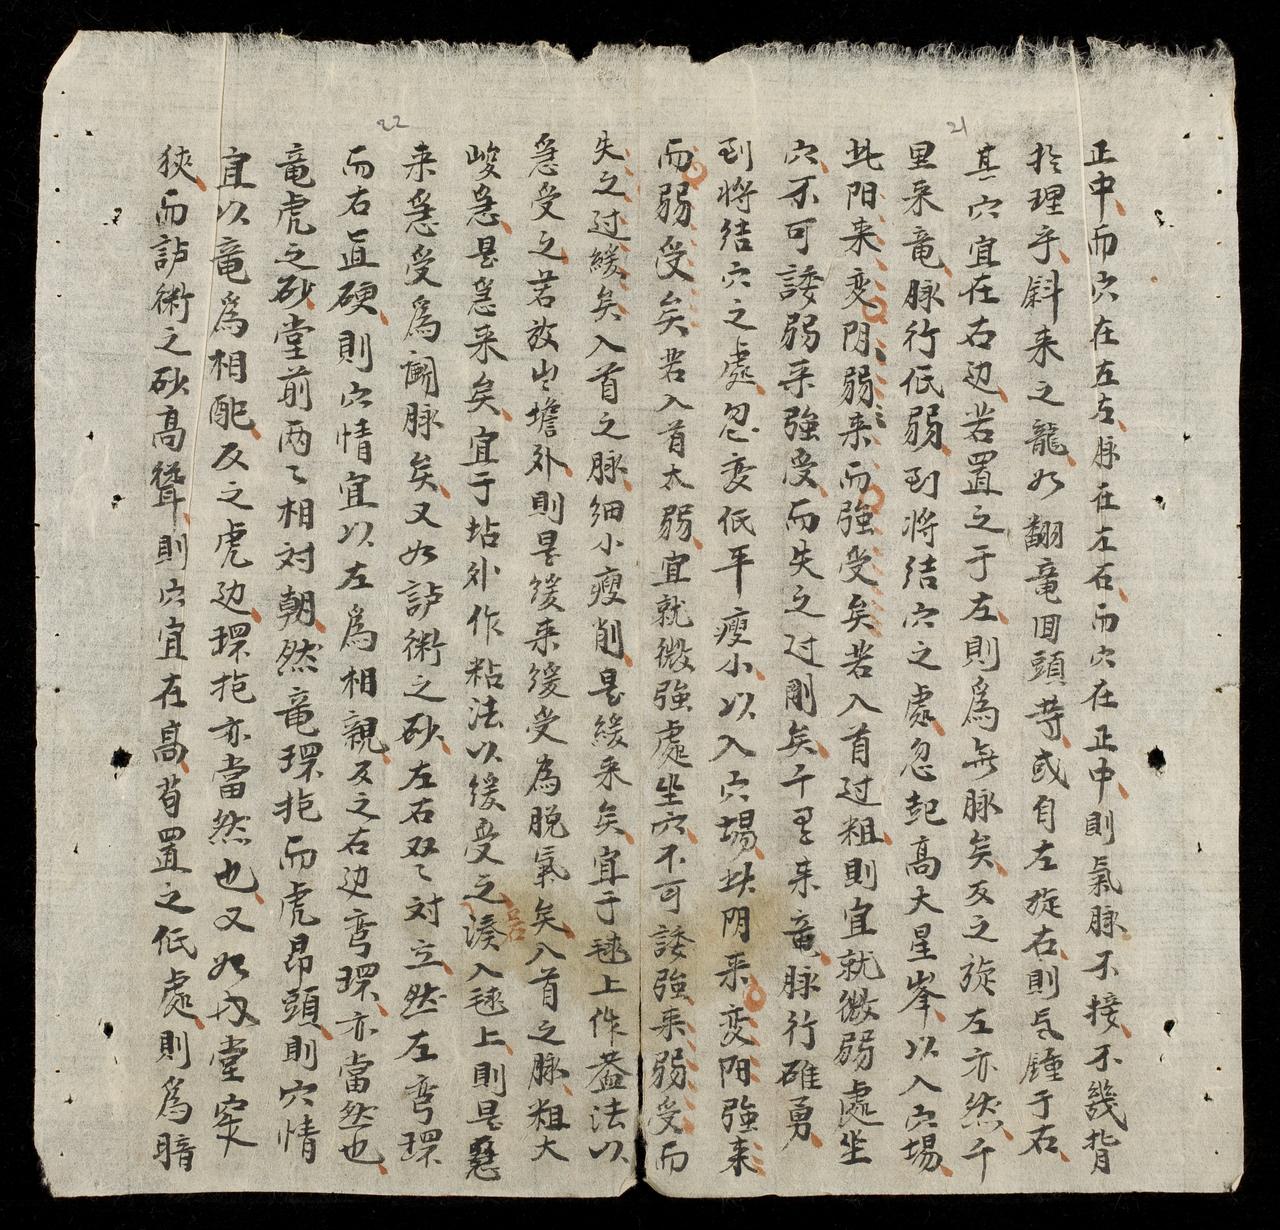 21
正中而穴在左左脉在左右而穴在正中則氣脉不接不幾背
扵理乎斜来之龍如翻竜囬頭等或自左旋右則气鍾于右
其穴宜在右边若置之于左則爲無脉矣反之旋左亦然千
里来竜脉行低弱到将結穴之處忽起高大星峯以入穴場
此阳来变阴弱来而強受矣若入首过粗則宜就微弱處坐
穴不可諉弱来強受而失之过剛矣千里来竜脉行雄勇
到将結穴之處忽变低平瘦小以入穴場此阴来变阳強来
而弱受矣若入首太弱宜就微強處坐穴不可諉強来弱受而
失之过緩矣入首之脉細小瘦削是緩来矣宜于毬上作葢法以
急受之若放出簷外則是緩来緩受為脱氣矣入首之脉粗大
峻急是急来矣宜于坫外作粘法以緩受之湊入毬上則是急
若
22
来急受爲鬭脉矣又如訪衛之砂左右双〻对立然左弯環
而右直硬則穴情宜以左爲相親反之右边弯環亦當然也
竜虎之砂堂前两〻相対朝然竜環抱而虎昂頭則穴情
宜以竜爲相配反之虎边環抱亦當然也又如内堂窄
狹而訪衛之砂高聳則穴宜在高若置之低處則爲暗